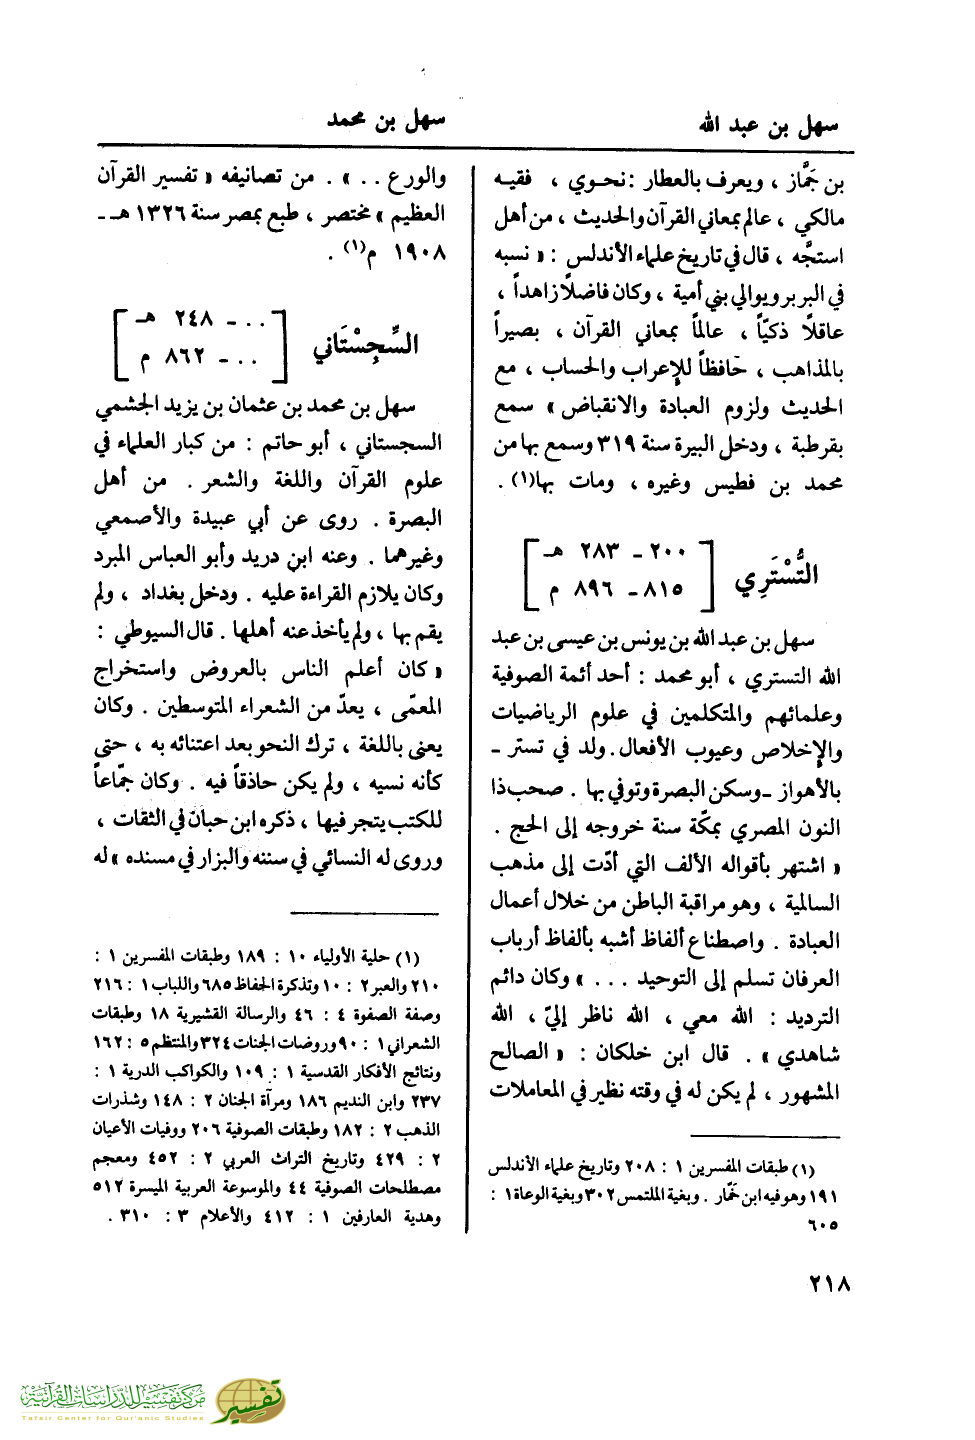 سهل بن عبد الله
سهل بن محمد
بن جَمَّاز ، ويعرف بالعطار : نحوي ، فقيه
مالكي ، عالم بمعاني القرآن والحديث ، من أهل
استجَّه ، قال في تاريخ علماء الأندلس : « نسبه
في البربر ويوالي بني أمية ، وكان فاضلاً زاهداً ،
عاقلاً ذكيّاً ، عالماً بمعاني القرآن ، بصيراً
بالمذاهب ، حَافظاً للإعراب والحساب ، مع
الحديث ولزوم العبادة والانقباض » سمع
بقرطبة ، ودخل البيرة سنة ٣١٩ وسمع بها من
محمد بن فطيس وغيره ، ومات بها(١) .
التُّسْتَرِي
٢٠٠ - ٢٨٣ هـ
٨١٥ - ٨٩٦ م
سهل بن عبد الله بن يونس بن عيسى بن عبد
الله التستري ، أبو محمد : أحد أئمة الصوفية
وعلمائهم والمتكلمين في علوم الرياضيات
والإخلاص وعيوب الأفعال . ولد في تستر -
بالأهواز - وسكن البصرة وتوفي بها . صحب ذا
النون المصري بمكّة سنة خروجه إلى الحج .
« اشتهر بأقواله الألف التي أدّت إلى مذهب
السالمية ، وهو مراقبة الباطن من خلال أعمال
العبادة . واصطناع ألفاظ أشبه بألفاظ أرباب
العرفان تسلم إلى التوحيد . . . » وكان دائم
الترديد : الله معي ، الله ناظر إليّ ، الله
شاهدي » . قال ابن خلكان : « الصالح
المشهور ، لم يكن له في وقته نظير في المعاملات
(١) طبقات المفسرين ١ : ٢٠٨ وتاريخ علماء الأندلس
١٩١ وهو فيه ابن خمّار . وبغية الملتمس ٣٠٢ وبغية الوعاة ١ :
٦٠٥
والورع . . » . من تصانيفه « تفسير القرآن
العظيم » مختصر ، طبع بمصر سنة ١٣٢٦ هـ -
١٩٠٨ م(١) .
السِّجِسْتَاني
. . - ٢٤٨ هـ
. . - ٨٦٢ م
سهل بن محمد بن عثمان بن يزيد الجشمي
السجستاني ، أبو حاتم : من كبار العلماء في
علوم القرآن واللغة والشعر . من أهل
البصرة . روى عن أبي عبيدة والأصمعي
وغيرهما . وعنه ابن دريد وأبو العباس المبرد
وكان يلازم القراءة عليه . ودخل بغداد ، ولم
يقم بها ، ولم يأخذ عنه أهلها . قال السيوطي :
« كان أعلم الناس بالعروض واستخراج
المعمّى ، يعدّ من الشعراء المتوسطين . وكان
يعنى باللغة ، ترك النحو بعد اعتنائه به ، حتى
كأنه نسيه ، ولم يكن حاذقاً فيه . وكان جمّاعاً
للكتب يتجر فيها ، ذكره ابن حبان في الثقات ،
وروى له النسائي في سننه والبزار في مسنده » له
(١) حلية الأولياء ١٠ : ١٨٩ وطبقات المفسرين ١ :
٢١٠ والعبر ٢ : ١٠ وتذكرة الحفاظ ٦٨٥ واللباب ١ : ٢١٦
وصفة الصفوة ٤ : ٤٦ والرسالة القشيرية ١٨ وطبقات
الشعراني ١ : ٩٠ وروضات الجنات ٣٢٤ والمنتظم ٥ : ١٦٢
ونتائج الأفكار القدسية ١ : ١٠٩ والكواكب الدرية ١ :
٢٣٧ وابن النديم ١٨٦ ومرآة الجنان ٢ : ١٤٨ وشذرات
الذهب ٢ : ١٨٢ وطبقات الصوفية ٢٠٦ ووفيات الأعيان
٢ : ٤٢٩ وتاريخ التراث العربي ٢ : ٤٥٢ ومعجم
مصطلحات الصوفية ٤٤ والموسوعة العربية الميسرة ٥١٢
وهدية العارفين ١ : ٤١٢ والأعلام ٣ : ٣١٠ .
٢١٨
مركز تفسير للدراسات القرآنية
Tafsir Center for Qur'anic Studies
تفسير